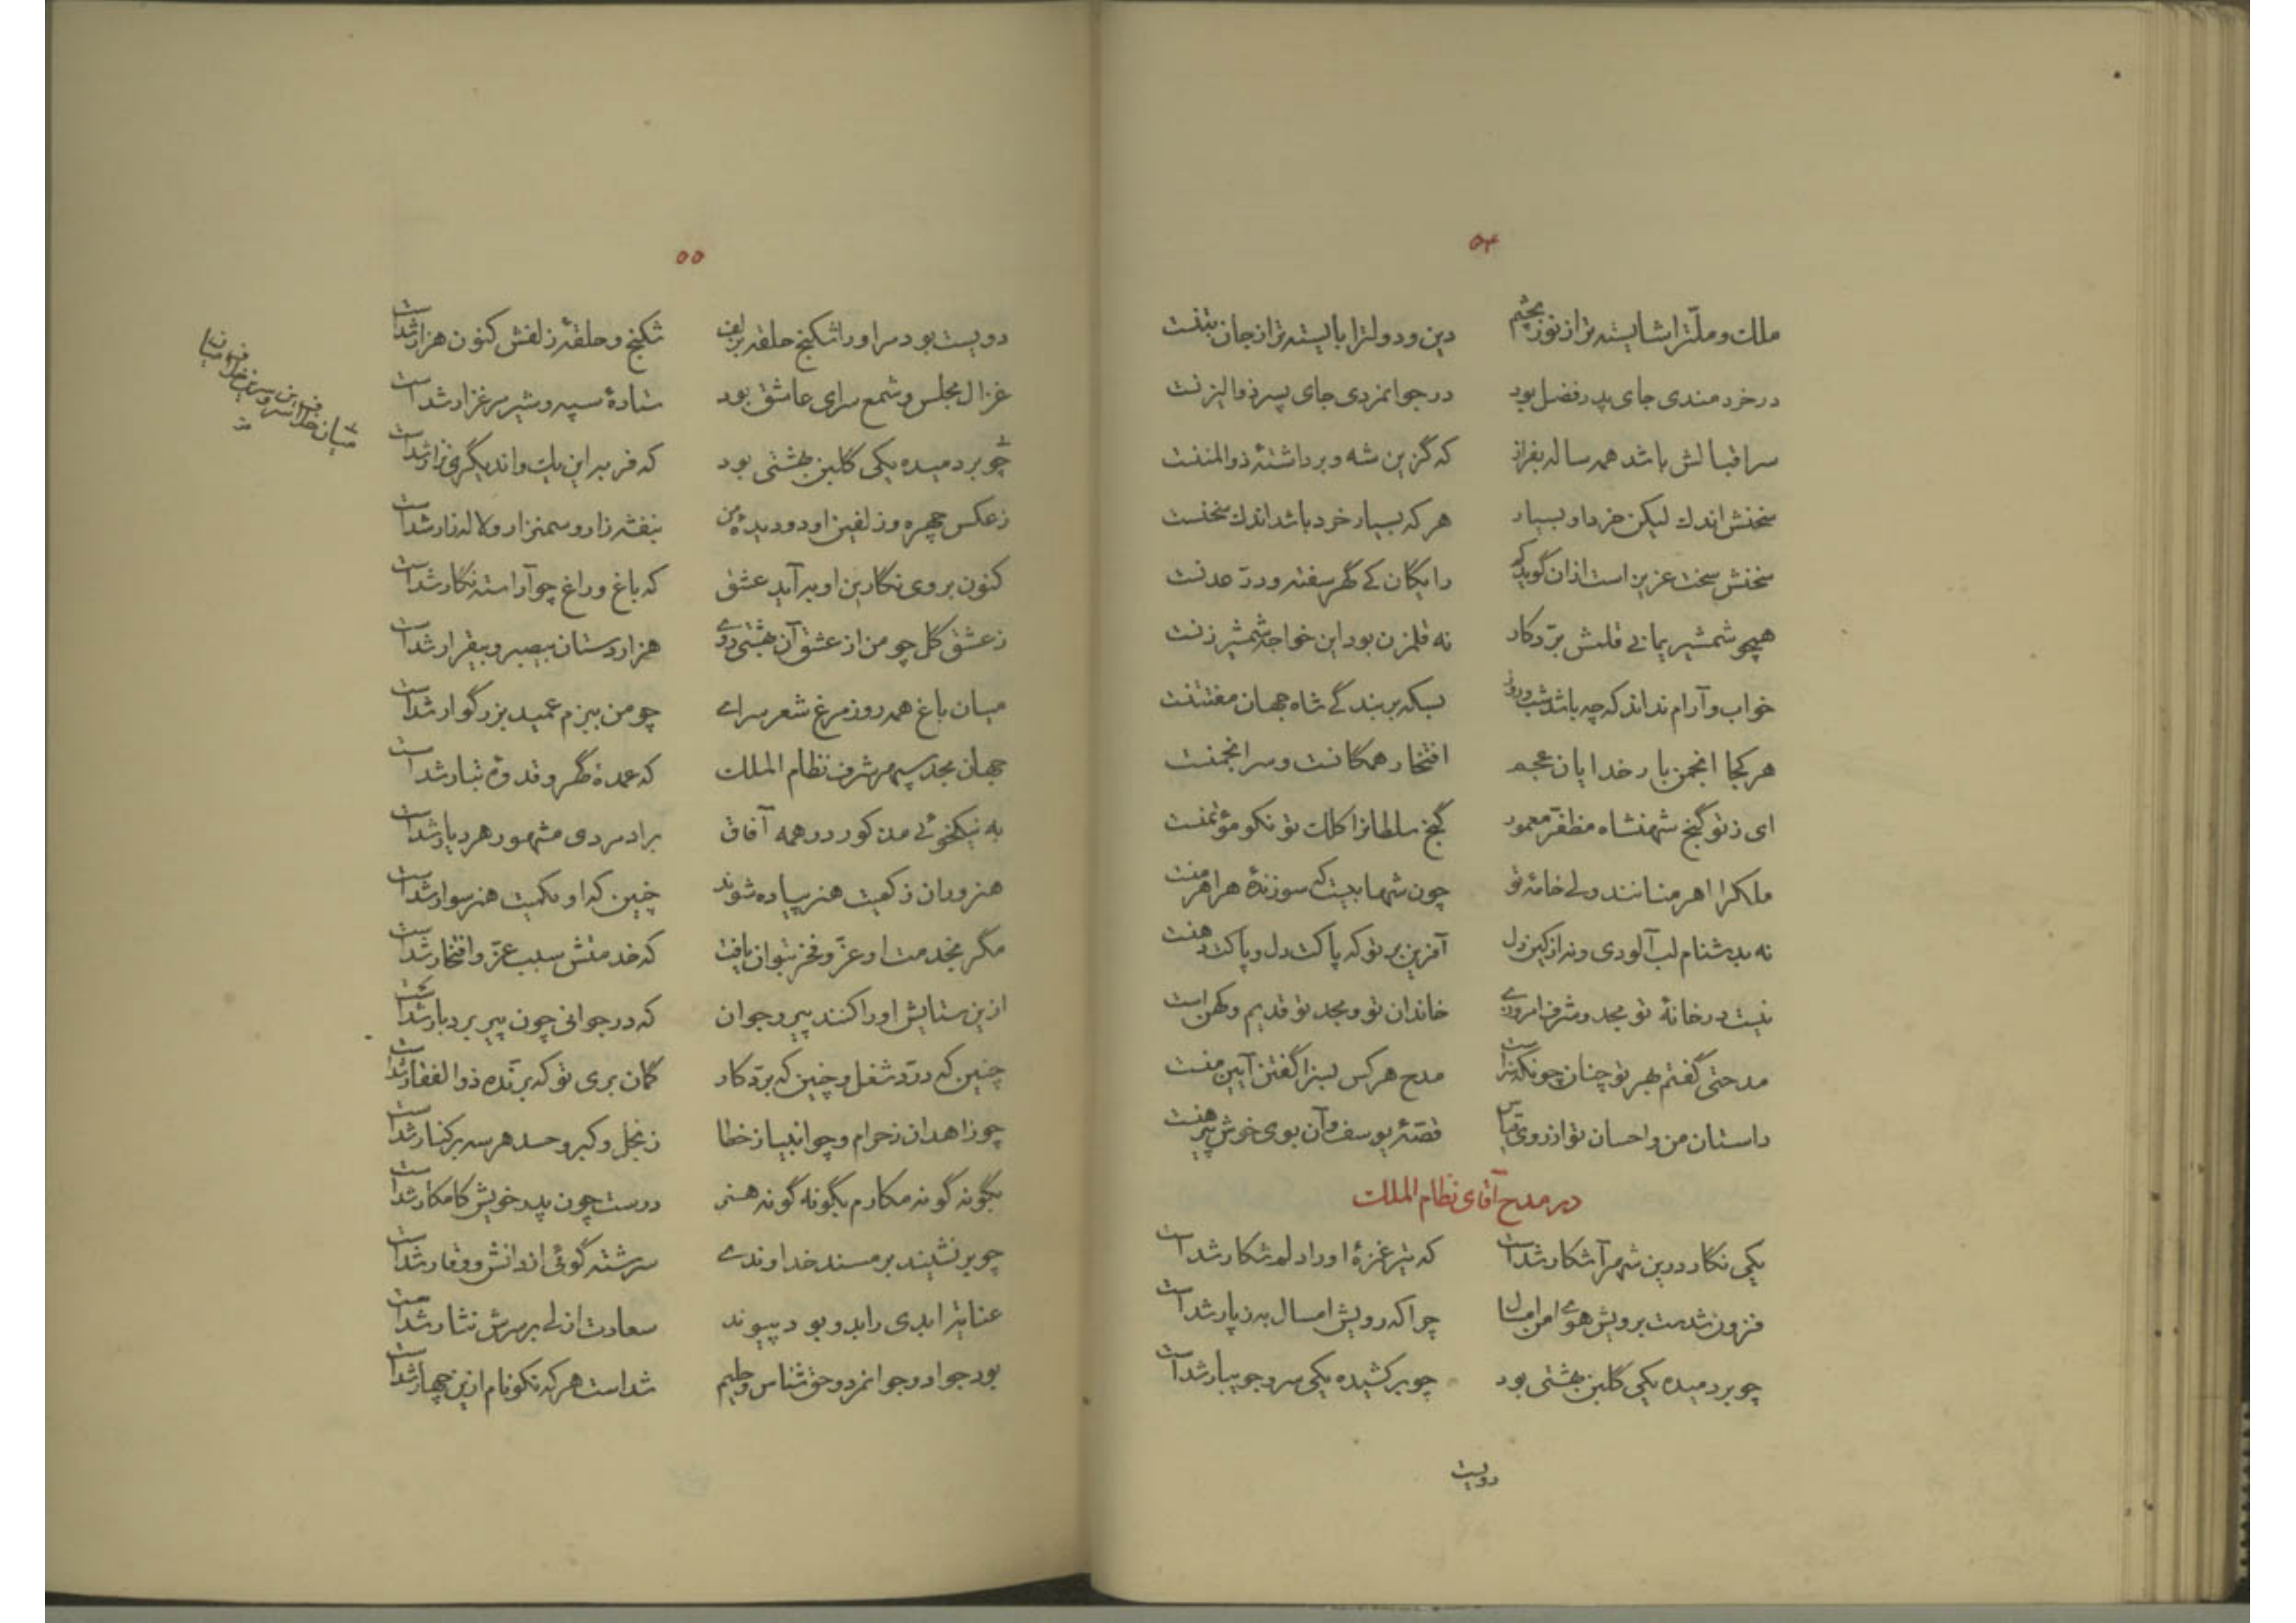 ۵۴
ملك و ملّترا شایسته‌تر از نور بچشم دین و دولترا بایسته‌تر از جان بتنست
در خردمندی جای پدر فضل بود در جوانمردی جای پسر ذوالیزنست
سر اقبالش باشد همه ساله بفراز که گزین شه و برداشتهٔ ذوالمننست
سخنش اندك لیکن خرد او بسیار هر که بسیار خرد باشد اندك سخنست
سخنش سخت عزیز است ازان گوید کم رایگان کی گهر سفته و درّ عدنست
همچو شمشیر یمانی قلمش برّد کار نه قلمزن بود این خواجه شمشیرزنست
خواب و آرام نداند که چه باشد شب و روز بسکه بر بندگی شاه جهان مفتتنست
هر کجا انجمن بار خدایان عجم افتخار همگانست و سر انجمنست
ای ز تو گنج شهنشاه مظفّر معمور گنج سلطانرا کلك تو نکو مؤتمنست
ملکرا اهرمنانند ولی خامهٔ تو چون شهابیست که سوزندهٔ هر اهرمنست
نه بدشنام لب آلودی و نه از کین دل آفرین بر تو که پاکت دل و پاکت دهنست
نیست در خانهٔ تو مجد و شرف امروزی خاندان تو و مجد تو قدیم و کهن است
مدحتی گفتم بهر تو چنان چونکه سزاست مدح هر کس بسزا گفتن آیین منست
داستان من و احسان تو از روی قیاس قصّهٔ یوسف و آن بوی خوش پیرهنست
در مدح آقای نظام الملك
یکی نگار درین شهر آشکار شداست که تیر غمزهٔ او را دلم شکار شداست
فزون شدست برویش هوای من امسال چرا که رویش امسال به ز پار شداست
چو بردمیده یکی گلبن بهشتی بود چو برکشیده یکی سرو جویبار شداست
دویست
۵۵
دویست بود مر او را شکنج حلقه زلف شکنج و حلقهٔ زلفش کنون هزار شداست
غزال مجلس و شمع سرای عاشق بود ستارهٔ سپه و شیر مرغزار شداست
چو بردمیده یکی گلبن بهشتی بود که فربه این یك و اندیگری نزار شداست
ز عکس چهره و زلفین او دو دیدهٔ من بنفشه‌زار و سمنزار و لاله‌زار شداست
کنون بروی نگارین او بر آید عشق که باغ و راغ چو آراسته نگار شداست
ز عشق گل چو من از عشق آن بهشتی روی هزاردستان بیصبر و بیقرار شداست
میان باغ همه روز مرغ شعر سرای چو من ببزم عمید بزرگوار شداست
جهان مجد سپهر شرف نظام الملك که عمدهٔ گهر و قدوهٔ تبار شداست
به نیکخوئی مذکور در همه آفاق برادمردی مشهور هر دیار شداست
هنروران ز کمیت هنر پیاده شوند چنین که او بکمیت هنر سوار شداست
مگر بخدمت او عزّ و فخر نتوان یافت که خدمتش سبب عزّ و افتخار شداست
ازین ستایش او را کنند پیر و جوان که در جوانی چون پیر بردبار شداست
چنین که درّد شغل و چنین که برّد کار گمان بری تو که برّنده ذوالفقار شداست
چو زاهدان ز حرام و چو انبیا ز خطا ز بخل و کبر و حسد هر سه بر کنار شداست
بگونه گونه مکارم بگونه گونه هنر درست چون پدر خویش کامکار شداست
چو بر نشیند بر مسند خداوندی سرشته گوئی از دانش و وقار شداست
عنایتی ابدی را بدو بود پیوند سعادت ازلی بر سرش نثار شداست
بود جواد و جوانمرد و حق شناس و حلیم شداست هر که نکونام ازین چهار شداست